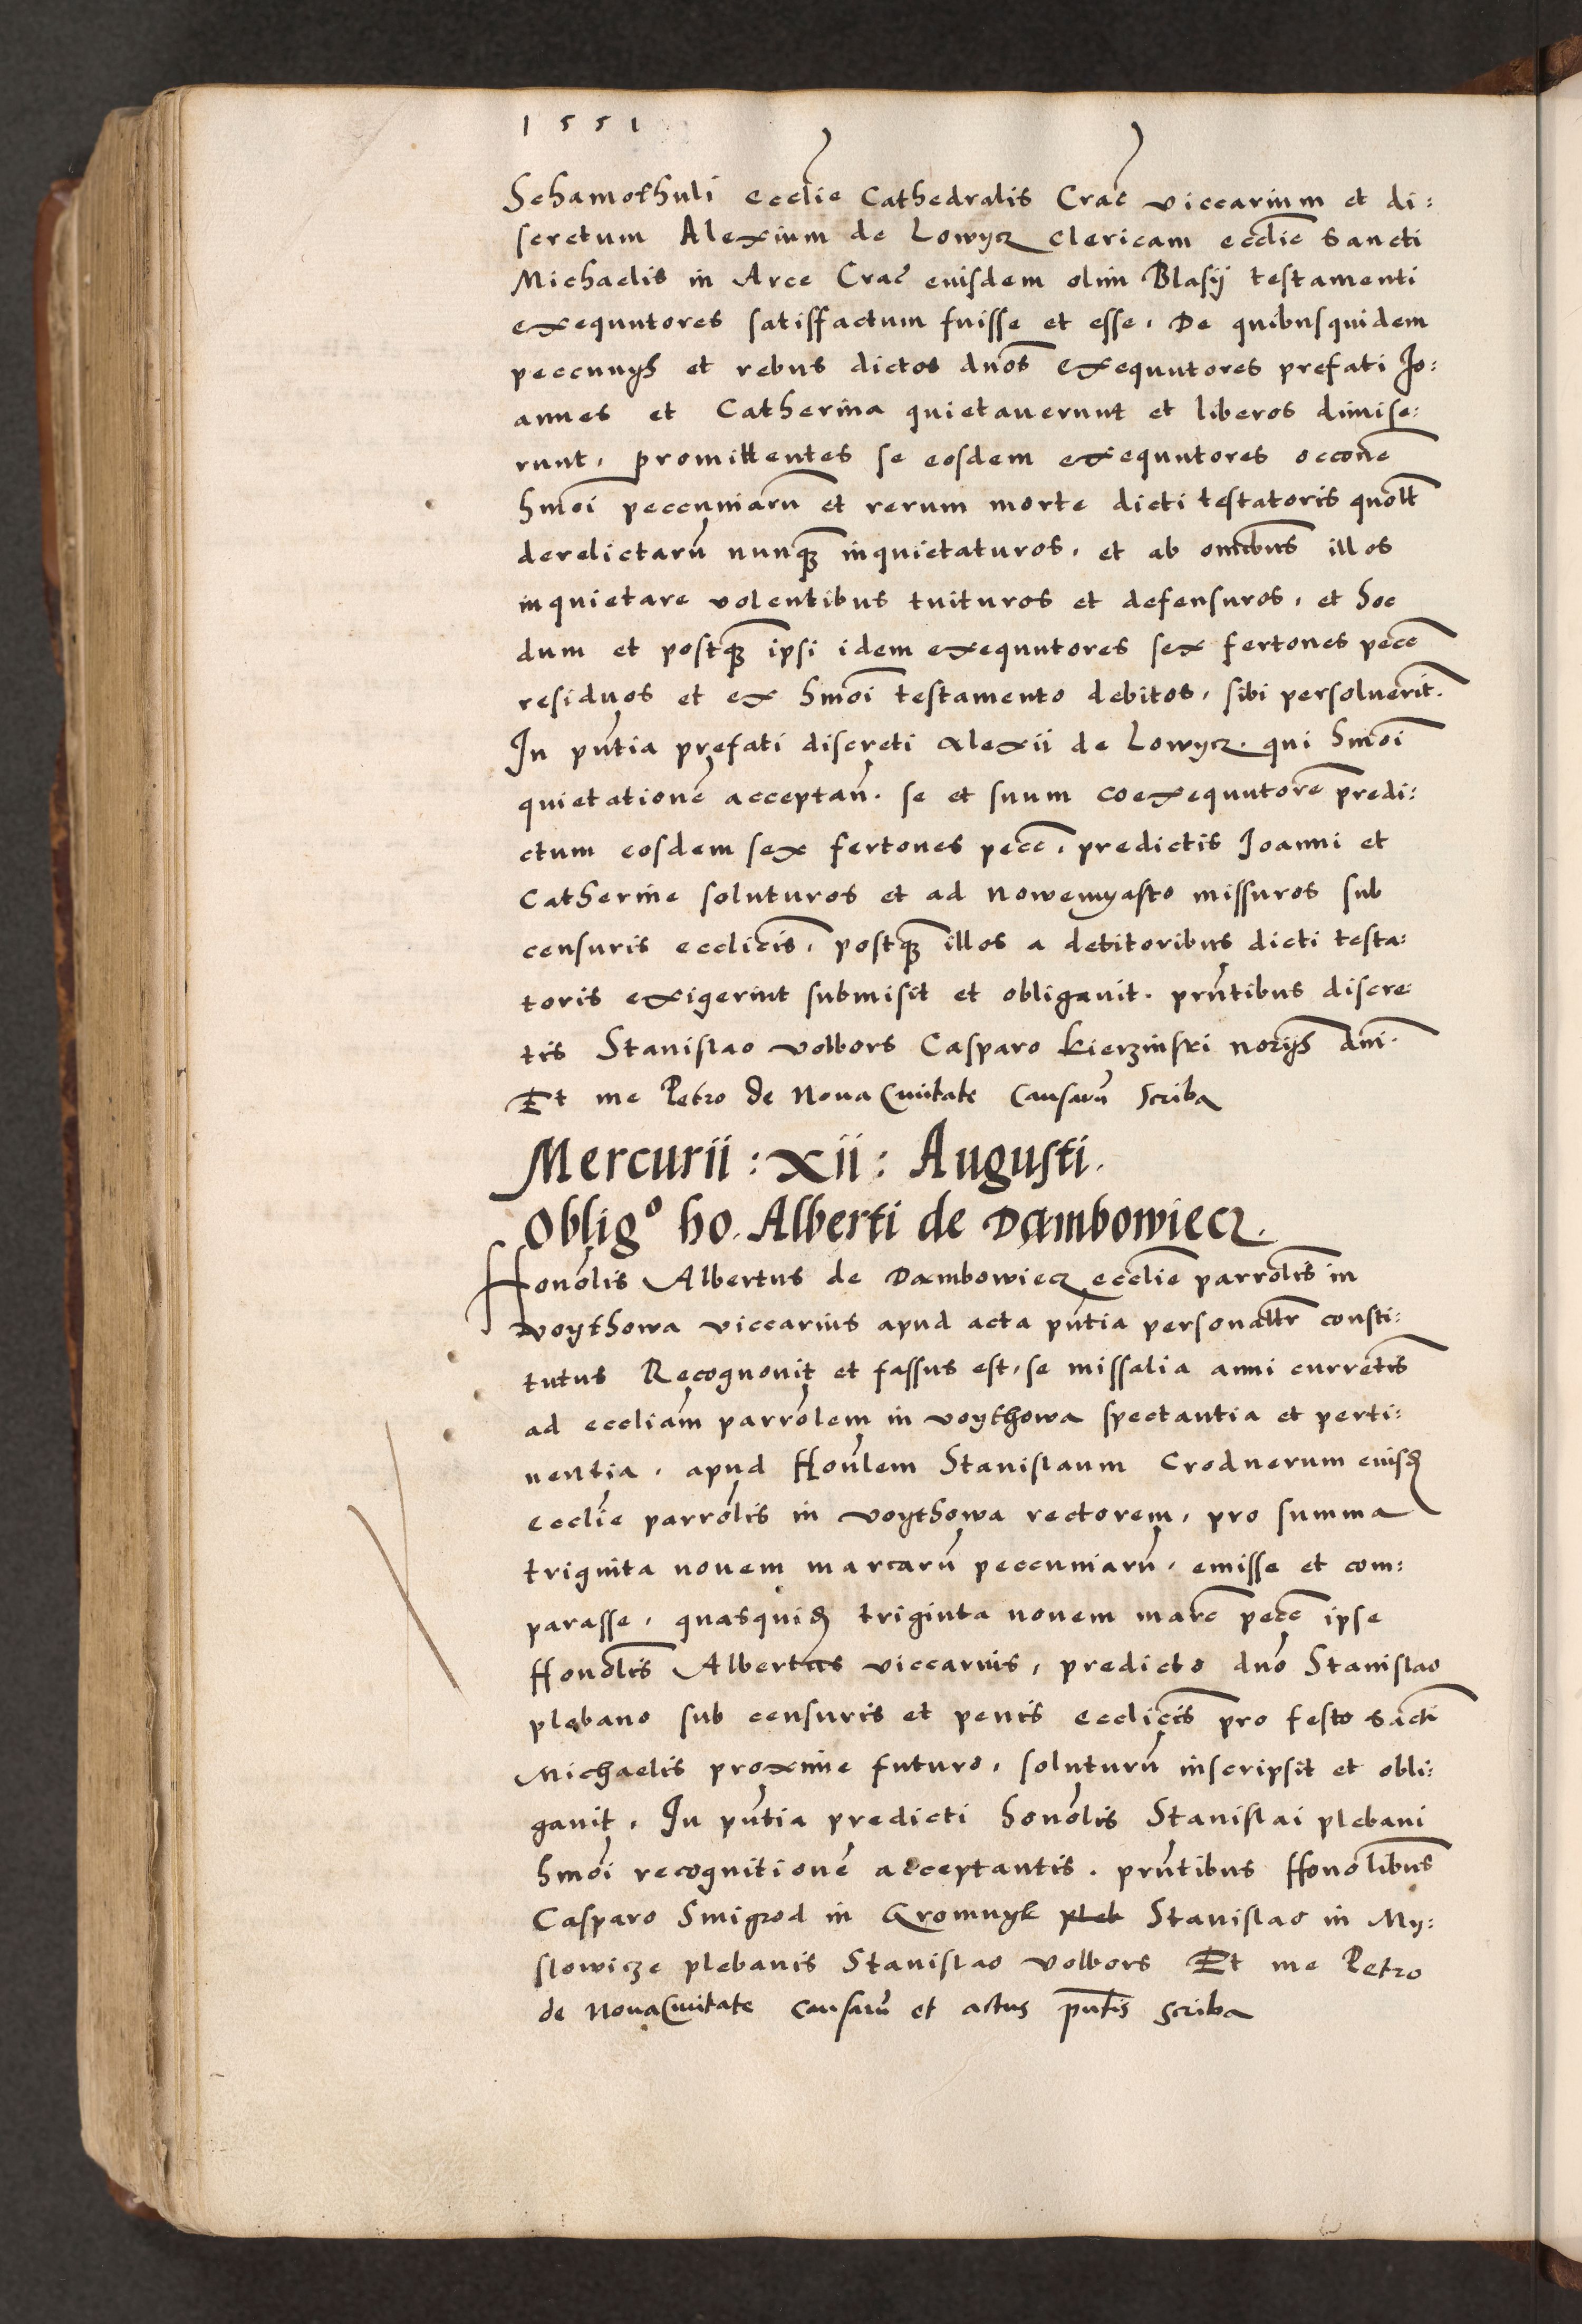 1551
Schamothuli ecclie Cathedralis Crac viccarium et di:
scretum Alexium de Lowycz clericam ecclie sancti
Michaelis in Arce Crac eiusdem olim Blasij testamenti
exequutores satisffactum fuisse et esse. De quibusquidem
peccunijs et rebus dictos dnos exequutores prefati Jo:
annes et Catherina quietauerunt et liberos dimise:
runt. promittentes se eosdem exequutores occone
hmoi peccuniaru et rerum morte dicti testatoris quolt
derelictaru nunq inquietaturos. et ab omibus illos
inquietare volentibus tuituros et defensuros. et hoc
dum et postq ipsi idem exequutores sex fertones pecc
residuos et ex hmoi testamento debitos. sibi persoluerit.
In pntia prefati discreti Alexii de Lowycz. qui hmoi
quietatione acceptan. se et suum coexequutore predi:
ctum eosdem sex fertones pecc. predictis Joanni et
Catherine soluturos et ad nowemyasto missuros sub
censuris ecclicis. postq illos a debitoribus dicti testa:
toris exigerint submisit et obligauit. prntibus discre
tis Stanislao volbors Casparo kierzinski norijs dni.
Et me Petro de Noua Ciuitate Causaru scriba
Mercurii : xii : Augusti.
Oblig° ho. Alberti de Dambowiecz.
Honolis Albertus de Dambowiecz ecclie parrolis in
voythowa viccarius apud acta pntia personaltr consti:
tutus Recognouit et fassus est. se missalia anni currentis
ad eccliam parrolem in voythowa spectantia et perti:
nentia. apud Honlem Stanislaum Crodnerum eiusd
ecclie parrolis in voythowa rectorem. pro summa
triginta nouem marcaru peccuniaru. emisse et com:
parasse. quasquid triginta nouem marc pecc ipse
Honolis Albertus viccarius. predicto dno Stanislao
plebano sub censuris et penis ecclicis pro festo sacti
Michaelis proxime futuro. soluturu inscripsit et obli:
gauit. In pntia predicti honolis Stanislai plebani
hmoi recognitione acceptantis. prntibus Honolibus
Casparo Smigrod in Gromnyk pleb Stanislao in My:
slowicze plebanis Stanislao volbors Et me Petro
de Noua Ciuitate causaru et actus pntis scriba